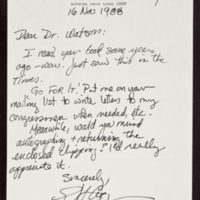 16 Nov 1988
Dear Dr. Watson:
I read your book some years
ago - wow. Just saw this in the
Times.
Go For It! Put me on your
mailing list to write letters to my
congressmen when needed, etc.
Meanwhile, would you mind
autographing & returning the
enclosed clipping? I'd really
appreciate it.
Sincerely,